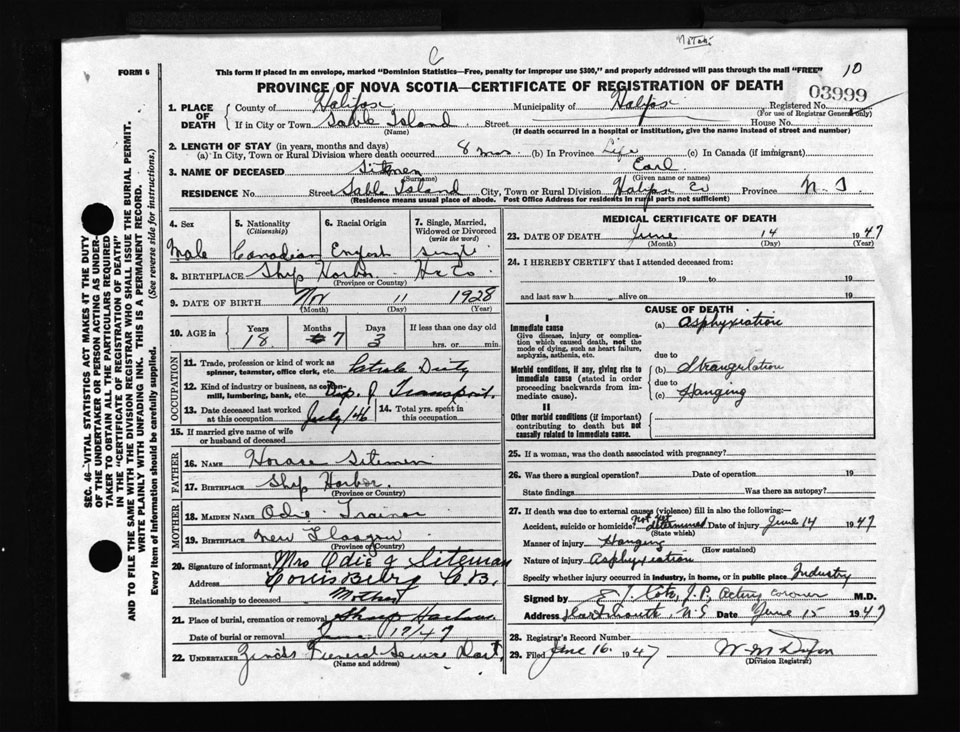 Notes.
C
FORM 6
This form if placed in an envelope, marked "Dominion Statistics—Free, penalty for improper use $300," and properly addressed will pass through the mail "FREE"
10
PROVINCE OF NOVA SCOTIA—CERTIFICATE OF REGISTRATION OF DEATH
03999
1. PLACE OF DEATH County of Halifax Municipality of Halifax Registered No.
(For use of Registrar General only)
If in City or Town Sable Island Street House No.
(Name) (If death occurred in a hospital or institution, give the name instead of street and number)
2. LENGTH OF STAY (in years, months and days)
(a) In City, Town or Rural Division where death occurred 8 mos. (b) In Province Life (c) In Canada (if immigrant)
3. NAME OF DECEASED Sitemen Earl
(Surname) (Given name or names)
RESIDENCE No. Street Sable Island City, Town or Rural Division Halifax Co Province N. S.
(Residence means usual place of abode. Post Office Address for residents in rural parts not sufficient)
4. Sex 5. Nationality (Citizenship) 6. Racial Origin 7. Single, Married, Widowed or Divorced (write the word)
Male Canadian English single
8. BIRTHPLACE Ship Harbor Hx Co
(Province or Country)
9. DATE OF BIRTH Nov 11 1928
(Month) (Day) (Year)
10. AGE in Years Months Days If less than one day old
18 7 3 hrs. or min.
OCCUPATION
11. Trade, profession or kind of work as spinner, teamster, office clerk, etc. Patrole Duty
12. Kind of industry or business, as cotton-mill, lumbering, bank, etc. Dep. of Transport.
13. Date deceased last worked at this occupation July/46 14. Total yrs. spent in this occupation
15. If married give name of wife or husband of deceased
FATHER
16. NAME Horace Sitemen
17. BIRTHPLACE Ship Harbor.
(Province or Country)
MOTHER
18. MAIDEN NAME Odie Trainor
19. BIRTHPLACE New Glasgow
(Province or Country)
20. Signature of informant Mrs Odie J Siteman
Address Louisburg C.B.
Relationship to deceased Mother
21. Place of burial, cremation or removal Ship Harbour
Date of burial or removal June 17/47
22. UNDERTAKER Zinck's Funeral Service Dart.
(Name and address)
MEDICAL CERTIFICATE OF DEATH
23. DATE OF DEATH June 14 1947
(Month) (Day) (Year)
24. I HEREBY CERTIFY that I attended deceased from:
19 to 19
and last saw h alive on 19
CAUSE OF DEATH
I
Immediate cause
Give disease, injury or complication which caused death, not the mode of dying, such as heart failure, asphyxia, asthenia, etc.
(a) Asphyxiation
due to
Morbid conditions, if any, giving rise to immediate cause (stated in order proceeding backwards from immediate cause).
(b) Strangulation
due to
(c) Hanging
II
Other morbid conditions (if important) contributing to death but not causally related to immediate cause.
25. If a woman, was the death associated with pregnancy?
26. Was there a surgical operation? Date of operation 19
State findings Was there an autopsy?
27. If death was due to external causes (violence) fill in also the following:
Accident, suicide or homicide? not yet determined Date of injury June 14 1947
(State which)
Manner of injury Hanging
(How sustained)
Nature of injury Asphyxiation
Specify whether injury occurred in industry, in home, or in public place Industry
Signed by J.P. Acting coroner M.D.
Address Dartmouth, N.S Date June 15 1947
28. Registrar's Record Number
29. Filed June 16. 1947 W. M Dixon
(Division Registrar)
SEC. 46—VITAL STATISTICS ACT MAKES IT THE DUTY
OF THE UNDERTAKER OR PERSON ACTING AS UNDERTAKER TO OBTAIN ALL THE PARTICULARS REQUIRED
IN THE "CERTIFICATE OF REGISTRATION OF DEATH"
AND TO FILE THE SAME WITH THE DIVISION REGISTRAR WHO SHALL ISSUE THE BURIAL PERMIT.
WRITE PLAINLY WITH UNFADING INK. THIS IS A PERMANENT RECORD.
Every item of Information should be carefully supplied. (See reverse side for instructions.)